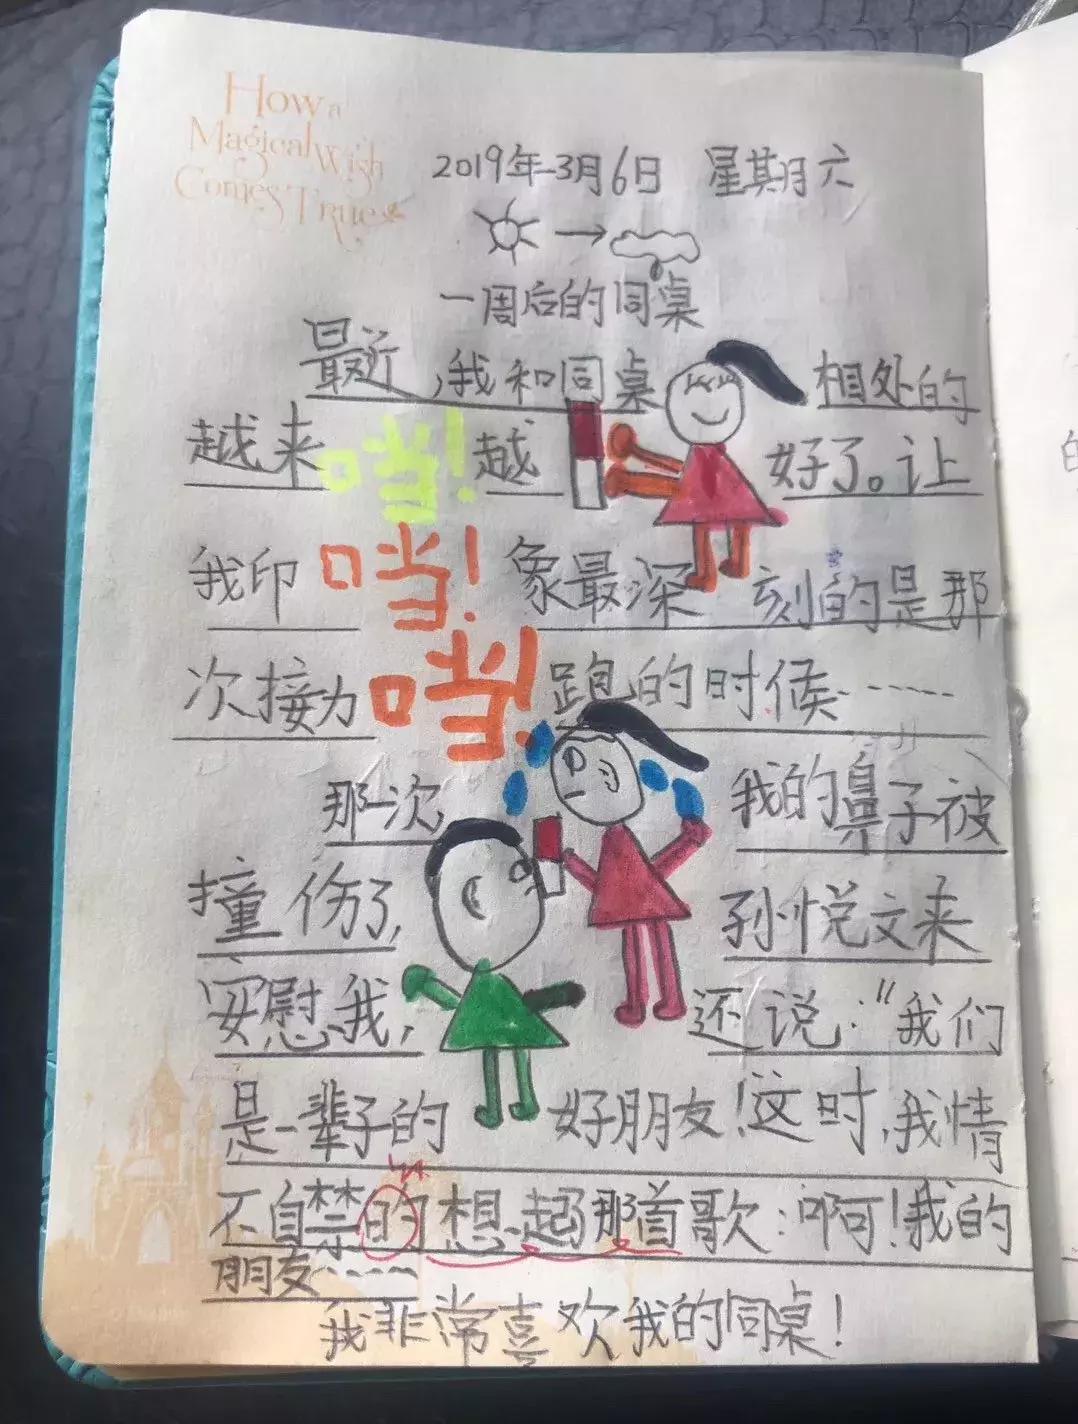 How a
Magical Wish
Comes True
2019年3月6日 星期六
一周后的同桌
最近,我和同桌相处的
越来越好了。让
当!
我印象最深刻的是那
当!
次接力跑的时候……
当!
那一次我的鼻子被
撞伤了,孙悦文来
安慰我,还说:"我们
是一辈子的好朋友!这时,我情
不自禁的想起那首歌:啊!我的
朋友……
我非常喜欢我的同桌!